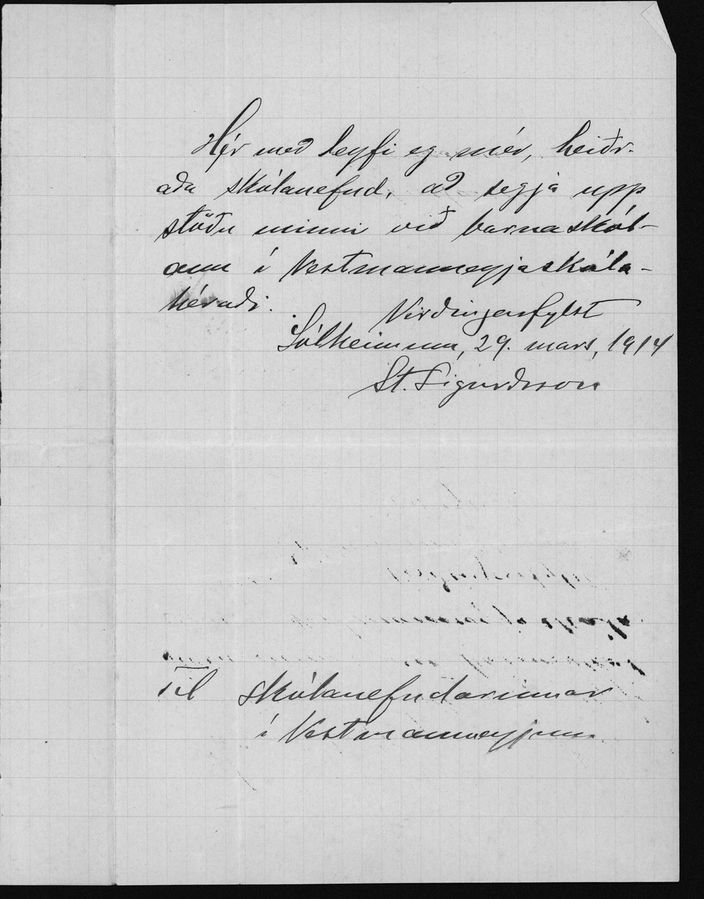 Hér með leyfi eg mér, heiðr-
aða skólanefnd, að segja upp
stöðu minni við barnaskól-
ann í Vestmanneyjaskóla-
héraði.
Virðingarfylst
Sólheimum, 29. mars, 1914
St. Sigurðsson
Til skólanefndarinnar
í Vestmanneyjum.